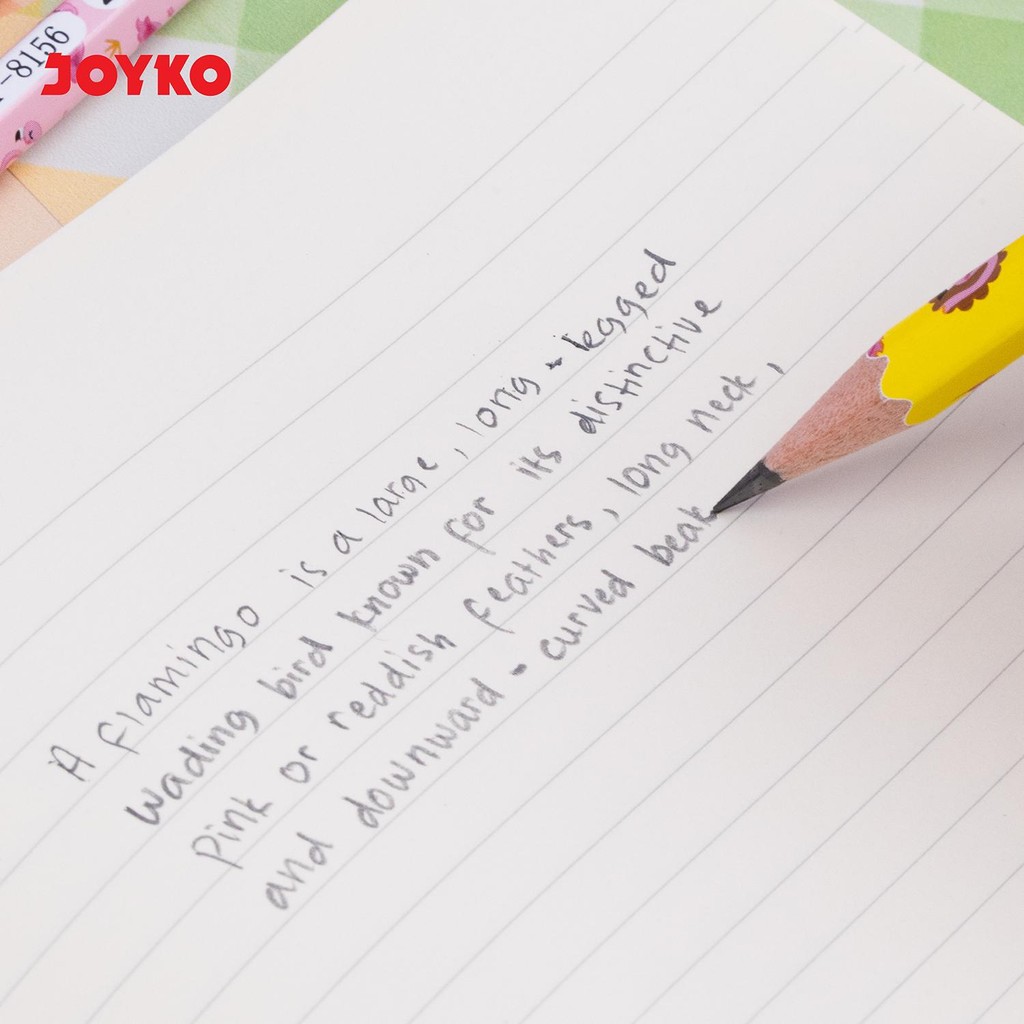 -8156
JOYKO
A flamingo is a large, long-legged
wading bird known for its distinctive
Pink or reddish feathers, long neck,
and downward-curved beak